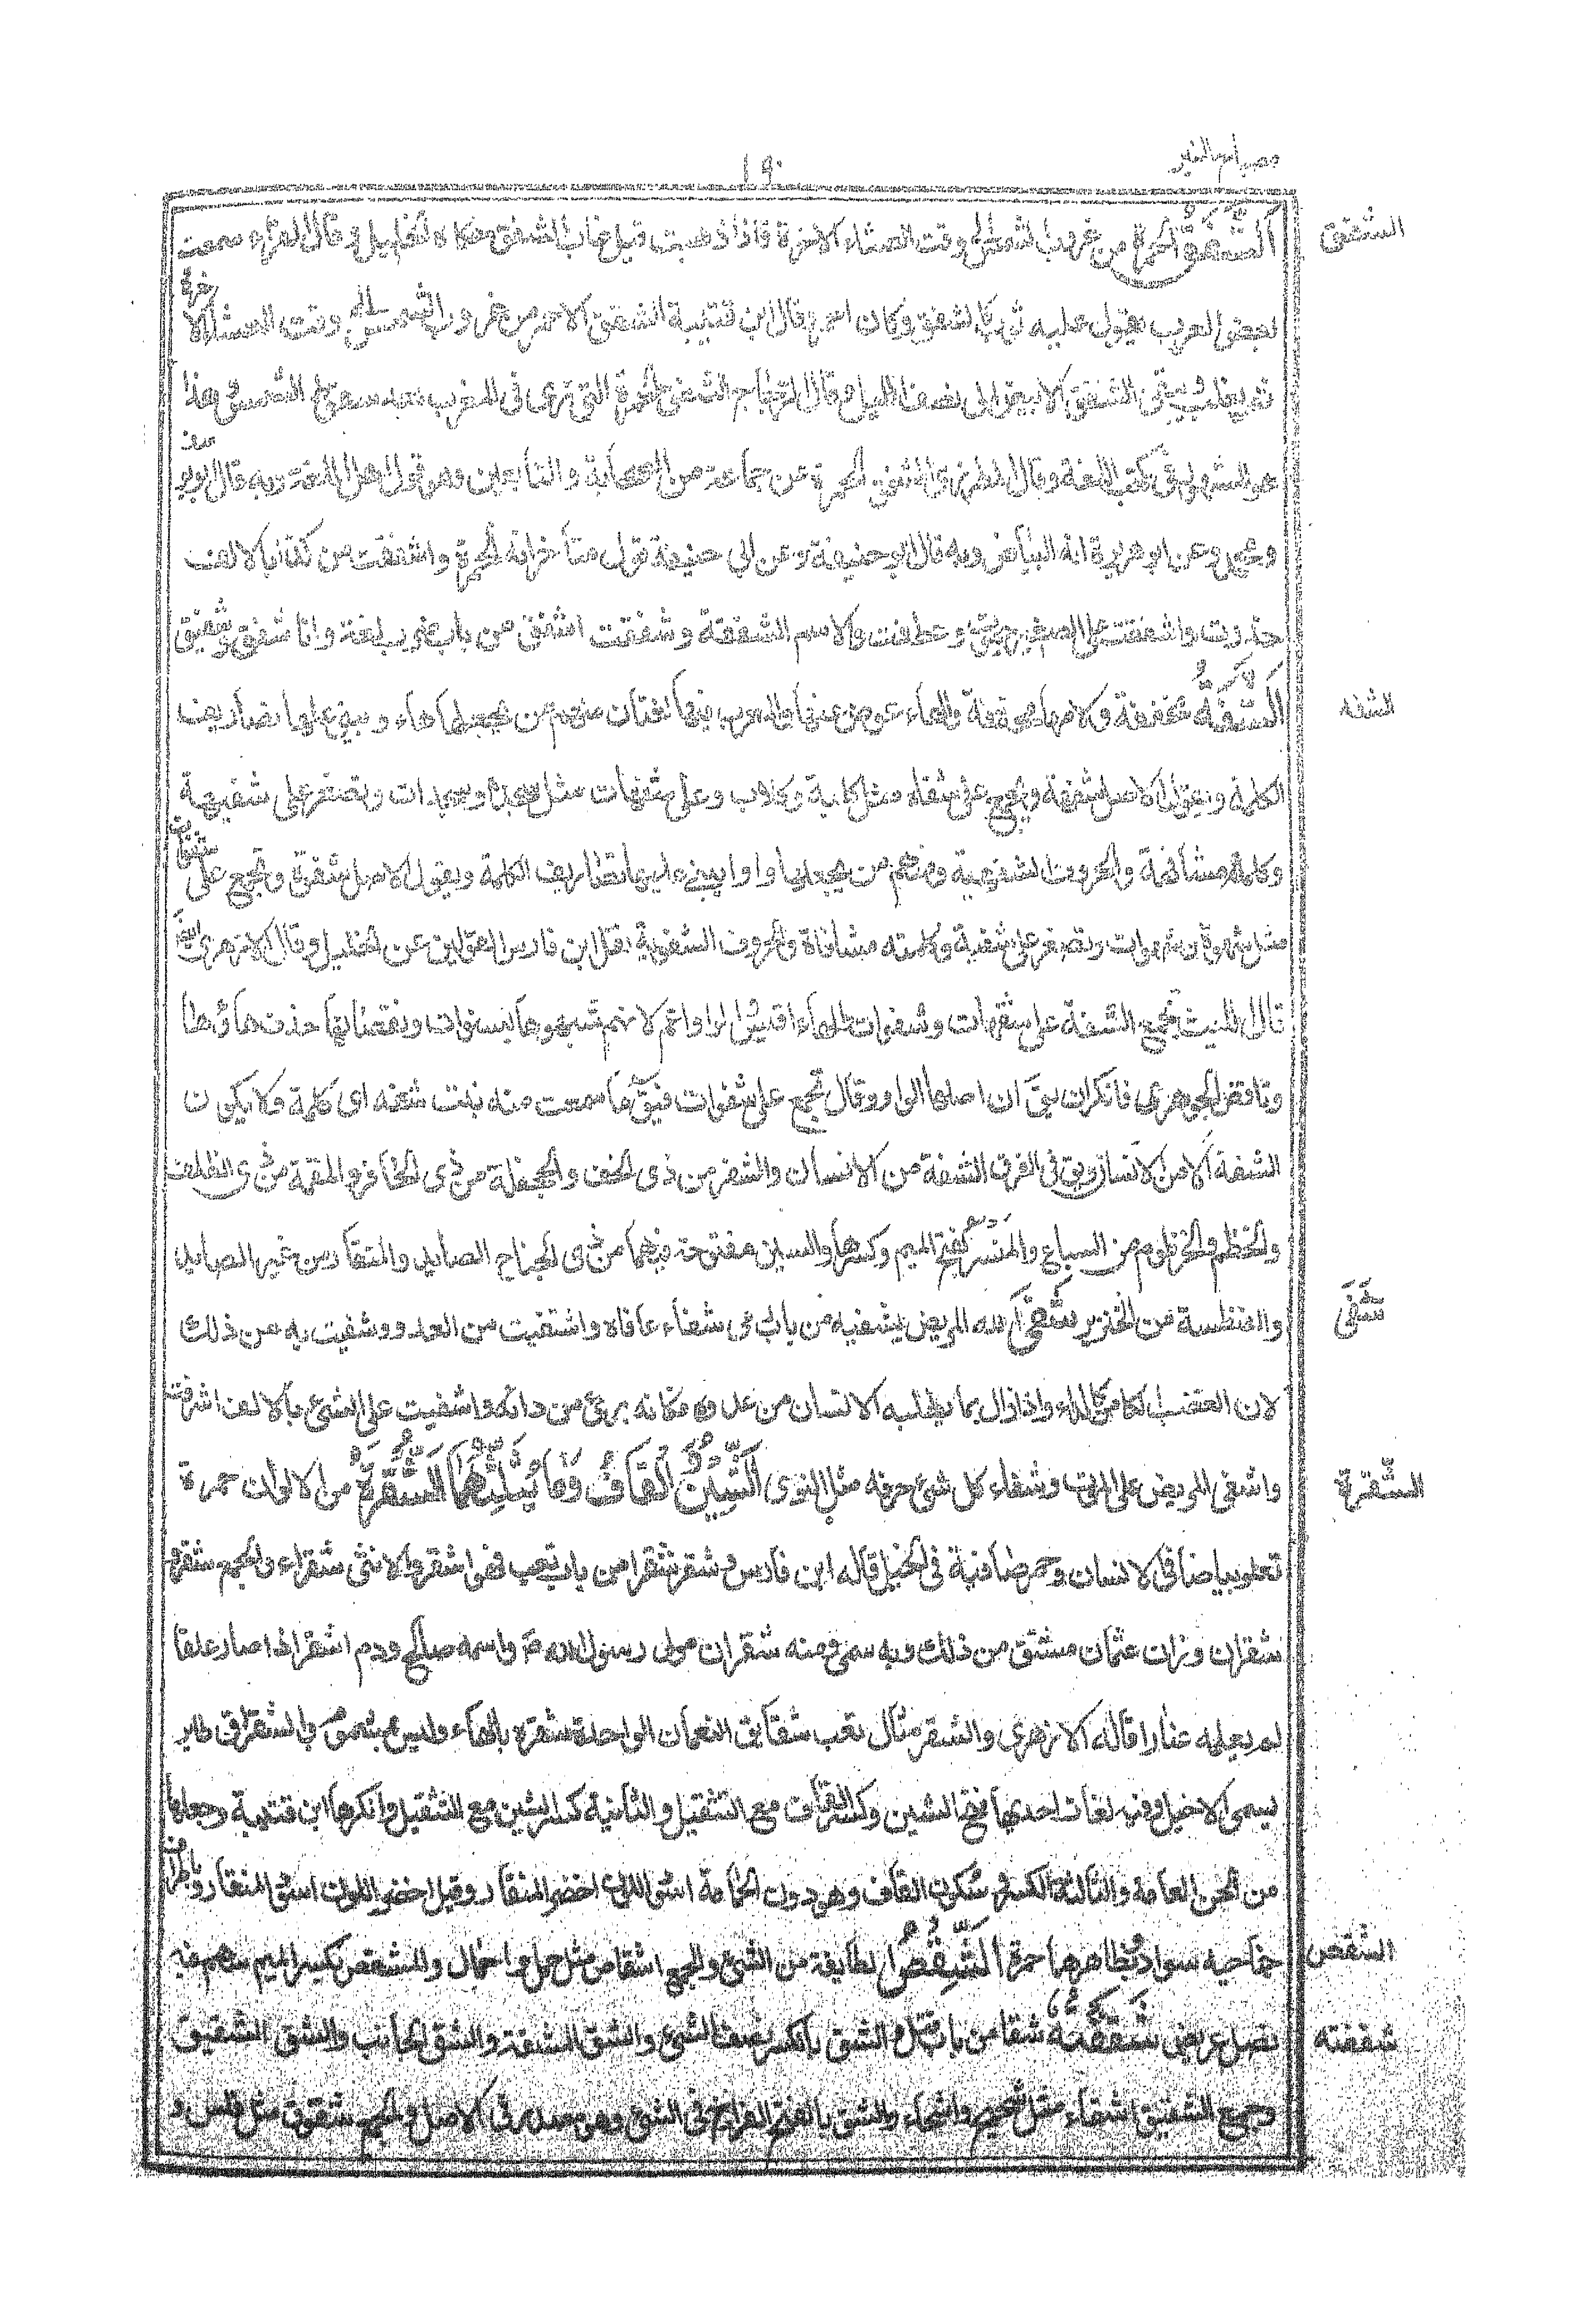 مصباح المنير
١٩٠
الشفق
اَلشَّفَقُ الحمرة من غروب الشمس الى وقت العشاء الاخرة فاذا ذهبت قيل غاب الشفق حكاه الخليل وقال الفراء سمعت
بعض العرب يقول عليه ثوب كالشفق وكان احمر وقال ابن قتيبة الشفق الاحمر من غروب الشمس الى وقت العشاء الاخرة
ثم يغيب ويبقى الشفق الابيض الى نصف الليل وقال الزجاج الشفق الحمرة التي ترى فى المغرب بعد سقوط الشمس وهذا
هو المشهور فى كتب اللغة وقال المطرزى الشفق الحمرة عن جماعة من الصحابة والتابعين وهو قول اهل اللغة وبه قال ابو يوسف
ومحمد وعن ابو هريرة انه البياض وبه قال ابو حنيفة وعن ابى حنيفة قول متأخر انه الحمرة واشفقت من كذا بالالف
حذرت واشفقت على الصغير حنوت وعطفت والاسم الشفقة وشفقت اشفق من باب ضرب لغة وانا شفق وشفيق
الشفه
اَلشَّفَةُ مخففة ولامها محذوفة والهاء عوض عنها وللعرب فيها لغتان منهم من يجعلها هاء ويبنى عليها تصاريف
الكلمة ويقول الاصل شفهة ويجمع على شفاه مثل كلبة وكلاب وعلى شفهات مثل سجدة وسجدات وتصغر على شفيهة
وكلمته مشافهة والحروف الشفهية ومنهم من يجعلها واوا ويبنى عليها تصاريف الكلمة ويقول الاصل شفوة وتجمع على شفوات
مثل شهوة وشهوات وتصغر على شفية وكلمته مشافاة والحروف الشفوية نقل ابن فارس القولين عن الخليل وقال الازهرى ايضا
قال الليث تجمع الشفة على شفهات وشفوات والهاء اقيس والواو اعم لانهم شبهوها بسنوات ونقصانها حذف هائها
وناقض الجوهرى فانكر ان يق ان اصلها الواو وقال تجمع على شفوات فيق ما سمعت منه بنت شفه اى كلمة ولا يكون
الشفة الا من الانسان ويق فى الفرق الشفة من الانسان والمشفر من ذى الخف والجحفلة من ذى الحافر والمقمة من ذى الظلف
والخطم والخرطوم من السباع والمنسر بفتح الميم وكسرها والسين مفتوحة فيهما من ذى الجناح الصايد والمنقار من غير الصايد
شَفَى
والفنطسة من الخنزير شَفَى الله المريض يشفيه من باب رمى شفاء عافاه واشتفيت من العدو وشفيت به من ذلك
لان الغضب الكامن كالداء واذا زال بما يطلبه الانسان من عدوه فكانه برئ من دائه واشفيت على الشئ بالالف اشرفت
الشّقرة
واشفى المريض على الموت وشفاء كل شئ حرفه مثل النوى اَلشِّيْنُ وَ الْقَافُ وَمَا يُثَلِّثُهُمَا اَلشُّقْرَةُ من الالوان حمرة
تعلو بياضا فى الانسان وحمرة صافية فى الخيل قاله ابن فارس وشقر شقرا من باب تعب فهو اشقر والانثى شقراء والجمع شقر و
شقران وزان عثمان مشتق من ذلك وبه سمى ومنه شقران مولى رسول الله ص واسمه صالح ودم اشقر اذا صار علقا
لم يعلمه غبار قاله الازهرى والشقر مثال تعب شقايق النعمان الواحدة شقرة بالهاء وليس بمشموم والشقراق طاير
يسمى الاخيل وفيه لغات احديها فتح الشين وكسر القاف مع التثقيل والثانية كسر الشين مع التثقيل وانكرها ابن قتيبة وجعلها
من لحن العامة والثالثة الكسر وسكون القاف وهو دون الحمامة اسود اللون اخضر المنقار وقيل اخضر اللون اسود المنقار وباطراف
الشقص
جناحيه سواد وبظاهرهما حمرة اَلشِّقْصُ الطايفة من الشئ والجمع اشقاص مثل حمل واحمال والمشقص بكسر الميم سهم فيه
شققته
نصل عريض شَقَقْتُهُ شقا من باب قتل والشق بالكسر نصف الشئ والشق المشقة والشق الجانب والشق الشقيق
وجمع الشقيق اشقاء مثل شحيح واشحاء والشق بالفتح انفراج فى الشئ وهو مصدر فى الاصل والجمع شقوق مثل فلس و